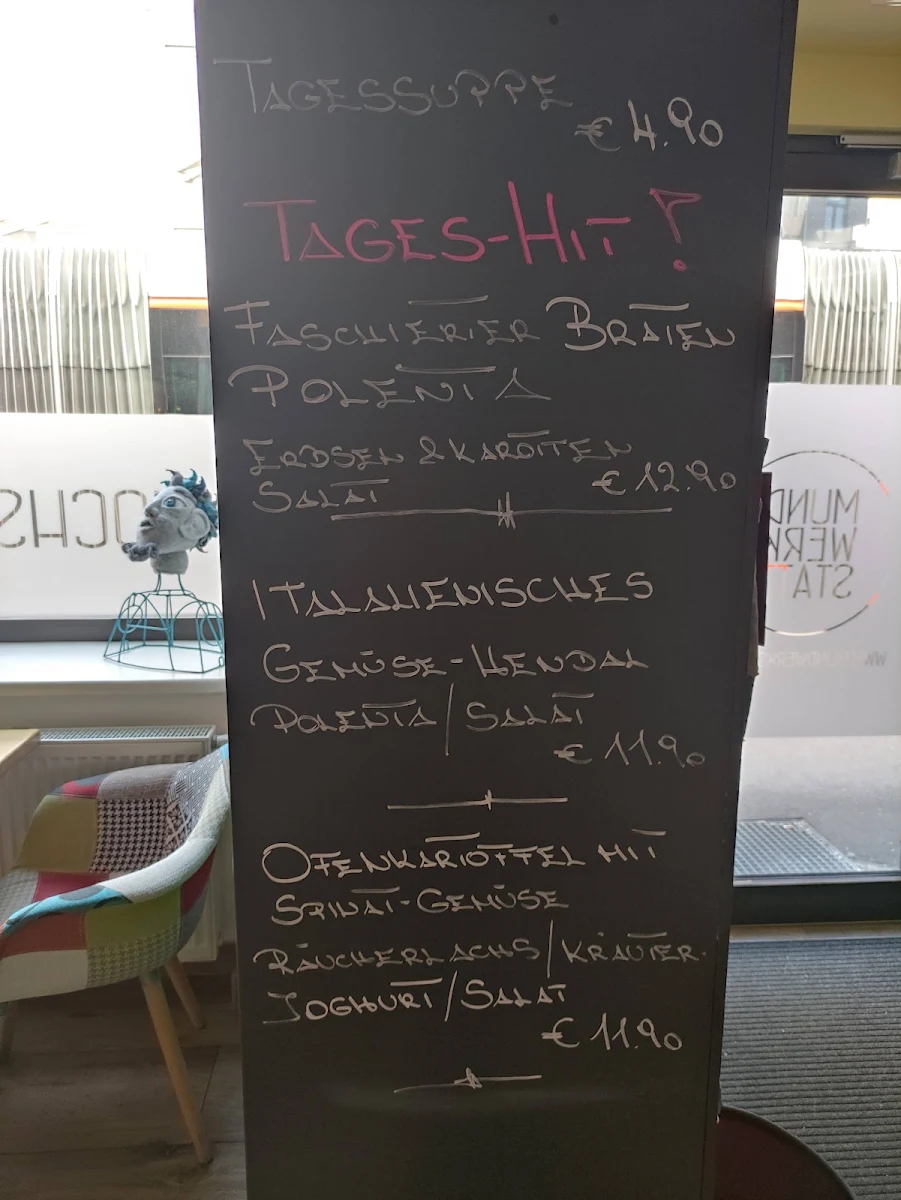 TAGESSUPPE
€ 4.90
TAGES-HIT!
FASCHIERTER BRATEN
POLENTA
ERBSEN & KAROTTEN
SALAT
€ 12.90
ITALALIENISCHES
GEMÜSE-HENDAL
POLENTA/SALAT
€ 11.90
OFENKARTOFFEL MIT
SPINAT-GEMÜSE
RÄUCHERLACHS/KRÄUTER-
JOGHURT/SALAT
€ 11.90
MUND
WERK
STA